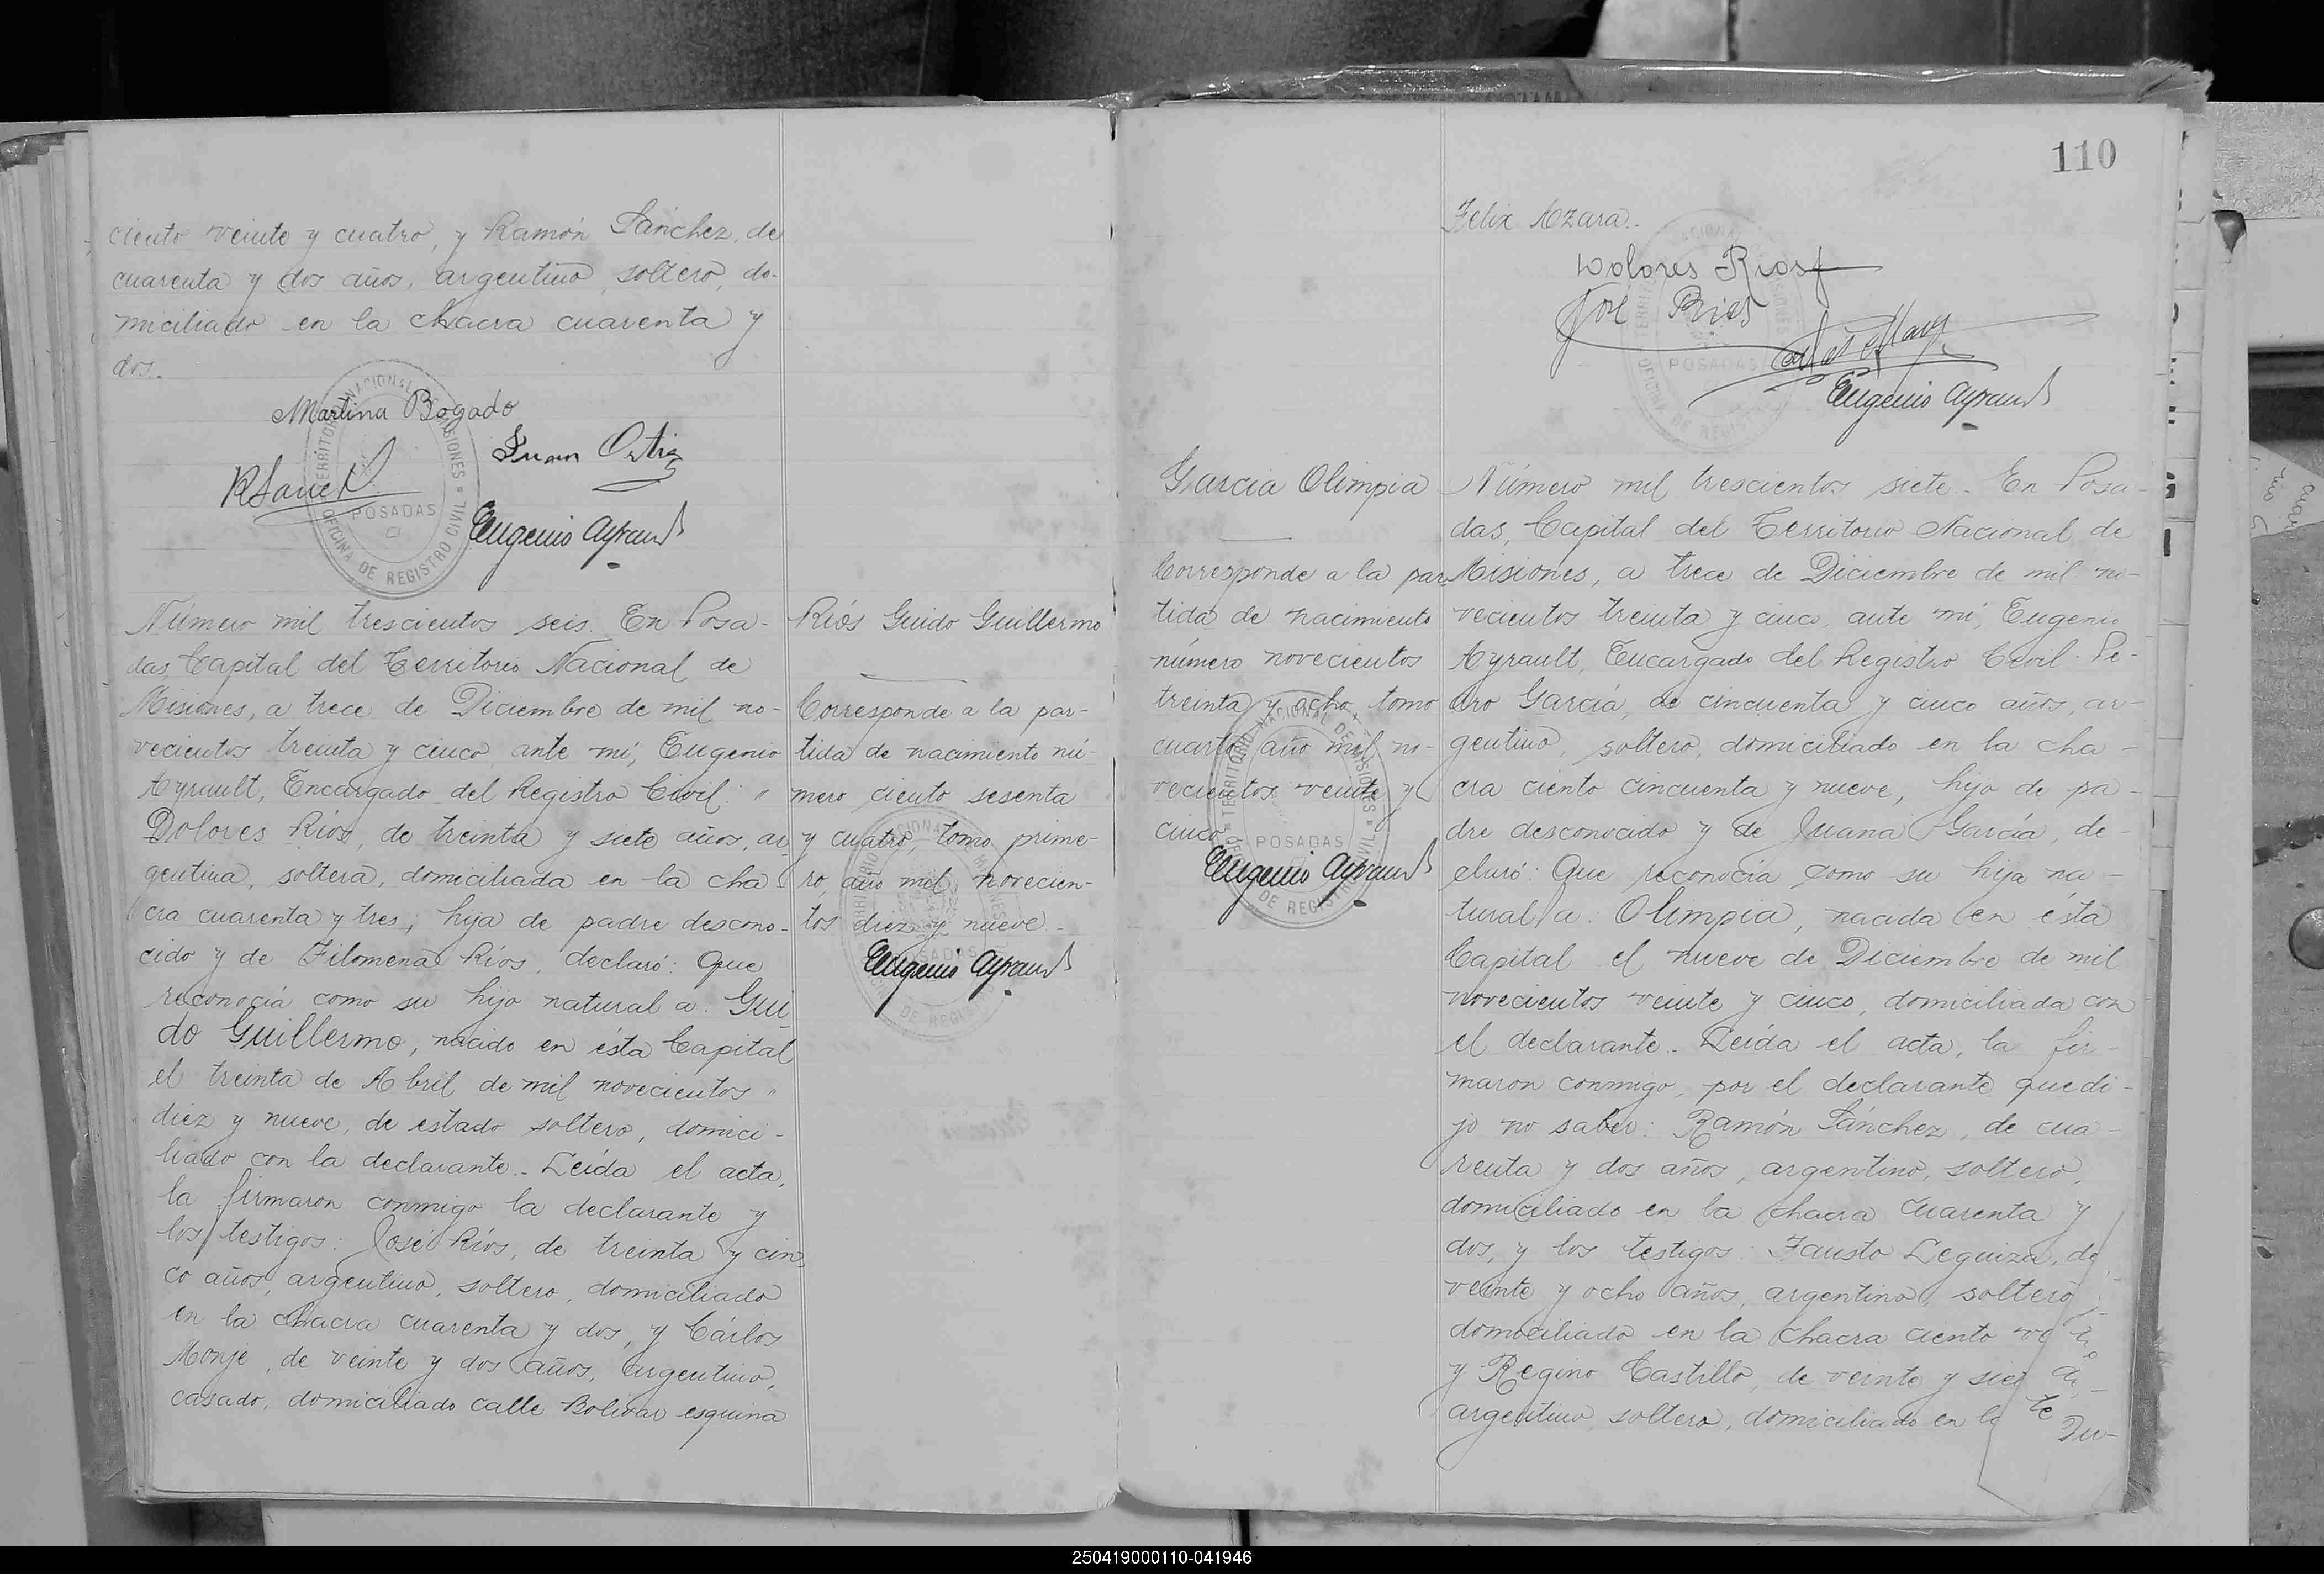 ciento veinte y cuatro, y Ramón Sánchez, de
cuarenta y dos años, argentino, soltero, do-
miciliado en la chacra cuarenta y
dos.-
Martina Bogado
Juan Ortiz
RSanch
Eugenio Ayrault
TERRITORIO NACIONAL DE MISIONES
POSADAS
OFICINA DE REGISTRO CIVIL
Número mil trescientos seis. En Posa-
das, Capital del Territorio Nacional de
Misiones, a trece de Diciembre de mil no-
vecientos treinta y cinco, ante mí, Eugenio
Ayrault, Encargado del Registro Civil: "
Dolores Ríos, de treinta y siete años, ar
gentina, soltera, domiciliada en la cha
cra cuarenta y tres, hija de padre descono-
cido y de Filomena Ríos, declaró: Que
reconocía como su hijo natural a: Gui
do Guillermo, nacido en ésta Capital
el treinta de Abril de mil novecientos "
diez y nueve, de estado soltero, domici-
liado con la declarante.- Leída el acta,
la firmaron conmigo la declarante y
los testigos: José Ríos, de treinta y cin
co años, argentino, soltero, domiciliado
en la chacra cuarenta y dos, y Cárlos
Monje, de veinte y dos años, argentino,
casado, domiciliado calle Bolivar esquina
Ríos Guido Guillermo
Corresponde a la par-
tida de nacimiento nú-
mero ciento sesenta
y cuatro, tomo prime-
ro año mil novecien-
tos diez y nueve.-
Eugenio Ayrault
110
Felix Azara.-
Dolores Rios
José Rios
Eugenio Ayrault
POSADAS
Garcia Olimpia
Corresponde a la par
tida de nacimiento
número novecientos
treinta y ocho, tomo
cuarto año mil no-
vecientos veinte y
cinco
Eugenio Ayrault
TERRITORIO NACIONAL DE MISIONES
POSADAS
Número mil trescientos siete.- En Posa-
das, Capital del Territorio Nacional de
Misiones, a trece de Diciembre de mil no-
vecientos treinta y cinco, ante mí, Eugenio
Ayrault, Encargado del Registro Civil: Pe-
dro García, de cincuenta y cinco años, ar-
gentino, soltero, domiciliado en la cha-
cra ciento cincuenta y nueve, hijo de pa-
dre desconocido y de Juana García, de-
claró: Que reconocía como su hija na-
tural a: Olimpia, nacida en ésta
Capital el nueve de Diciembre de mil
novecientos veinte y cinco, domiciliada con
el declarante.- Leída el acta, la fir-
maron conmigo, por el declarante que di-
jo no saber: Ramón Sánchez, de cua-
renta y dos años, argentino, soltero,
domiciliado en la chacra cuarenta y
dos, y los testigos: Fausto Leguiza, de
veinte y ocho años, argentino, soltero
domiciliado en la chacra ciento ve
y Regino Castillo, de veinte y sie
argentino soltero, domiciliado en la
te
250419000110-041946